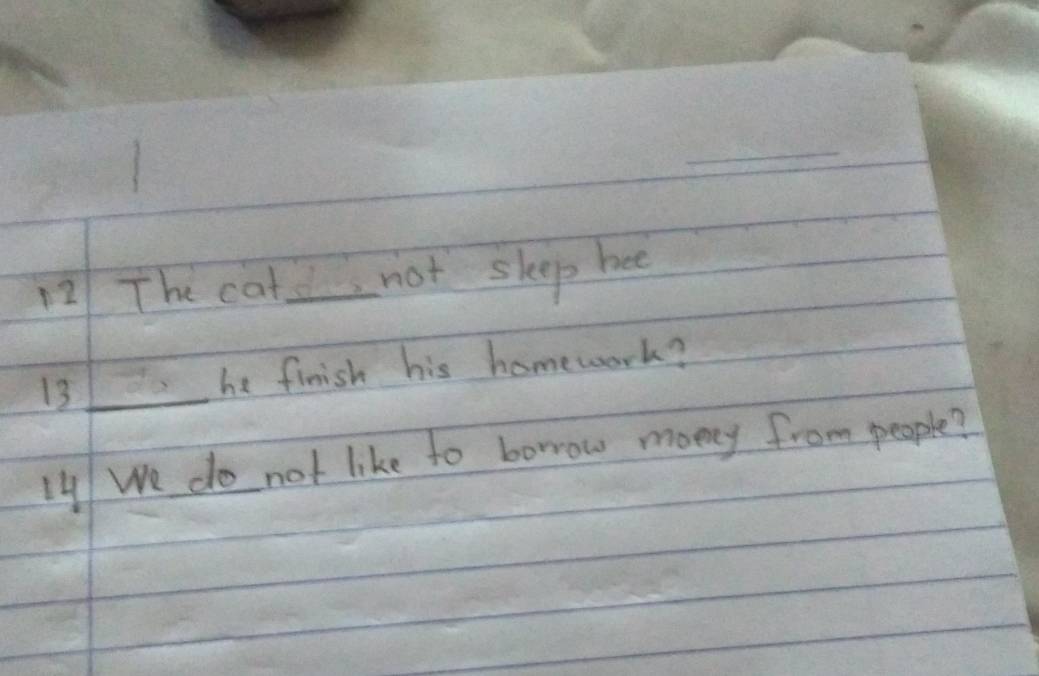 12 The cat ____ not sleep hee
13 ____ he finish his homework?
14 We do not like to borrow money from people?